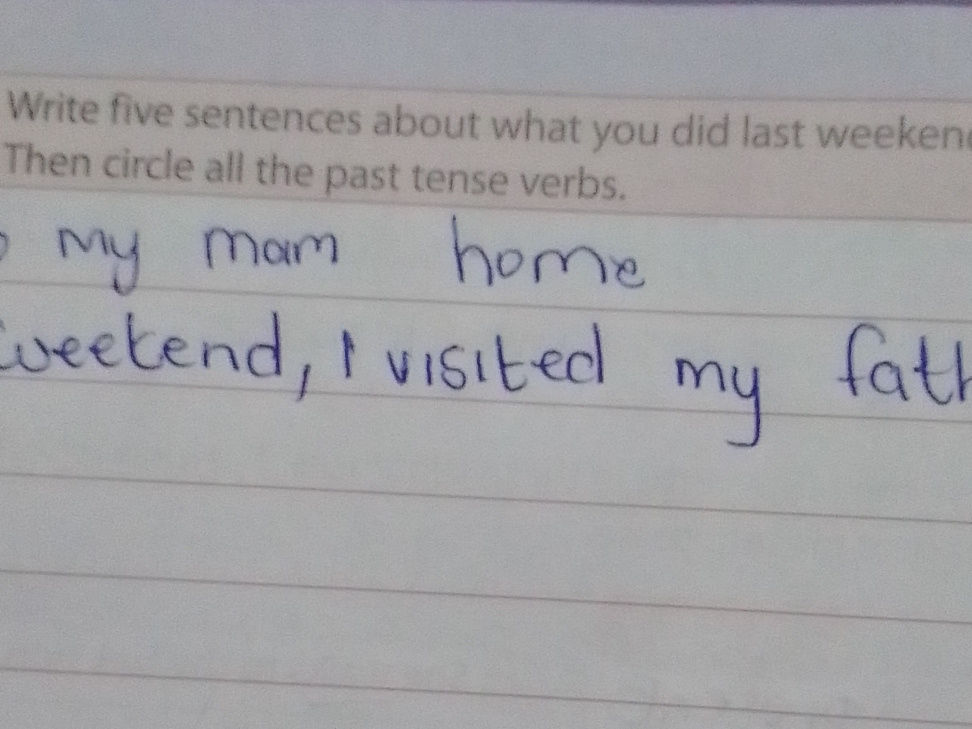 Write five sentences about what you did last weeken
Then circle all the past tense verbs.
my mam home
weekend, I visited my fath